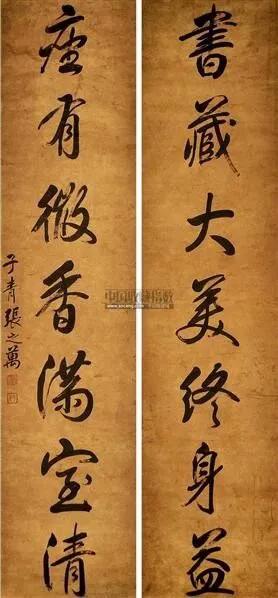 書藏大美終身益
座有微香滿室清
子青張之萬
中国收藏指数